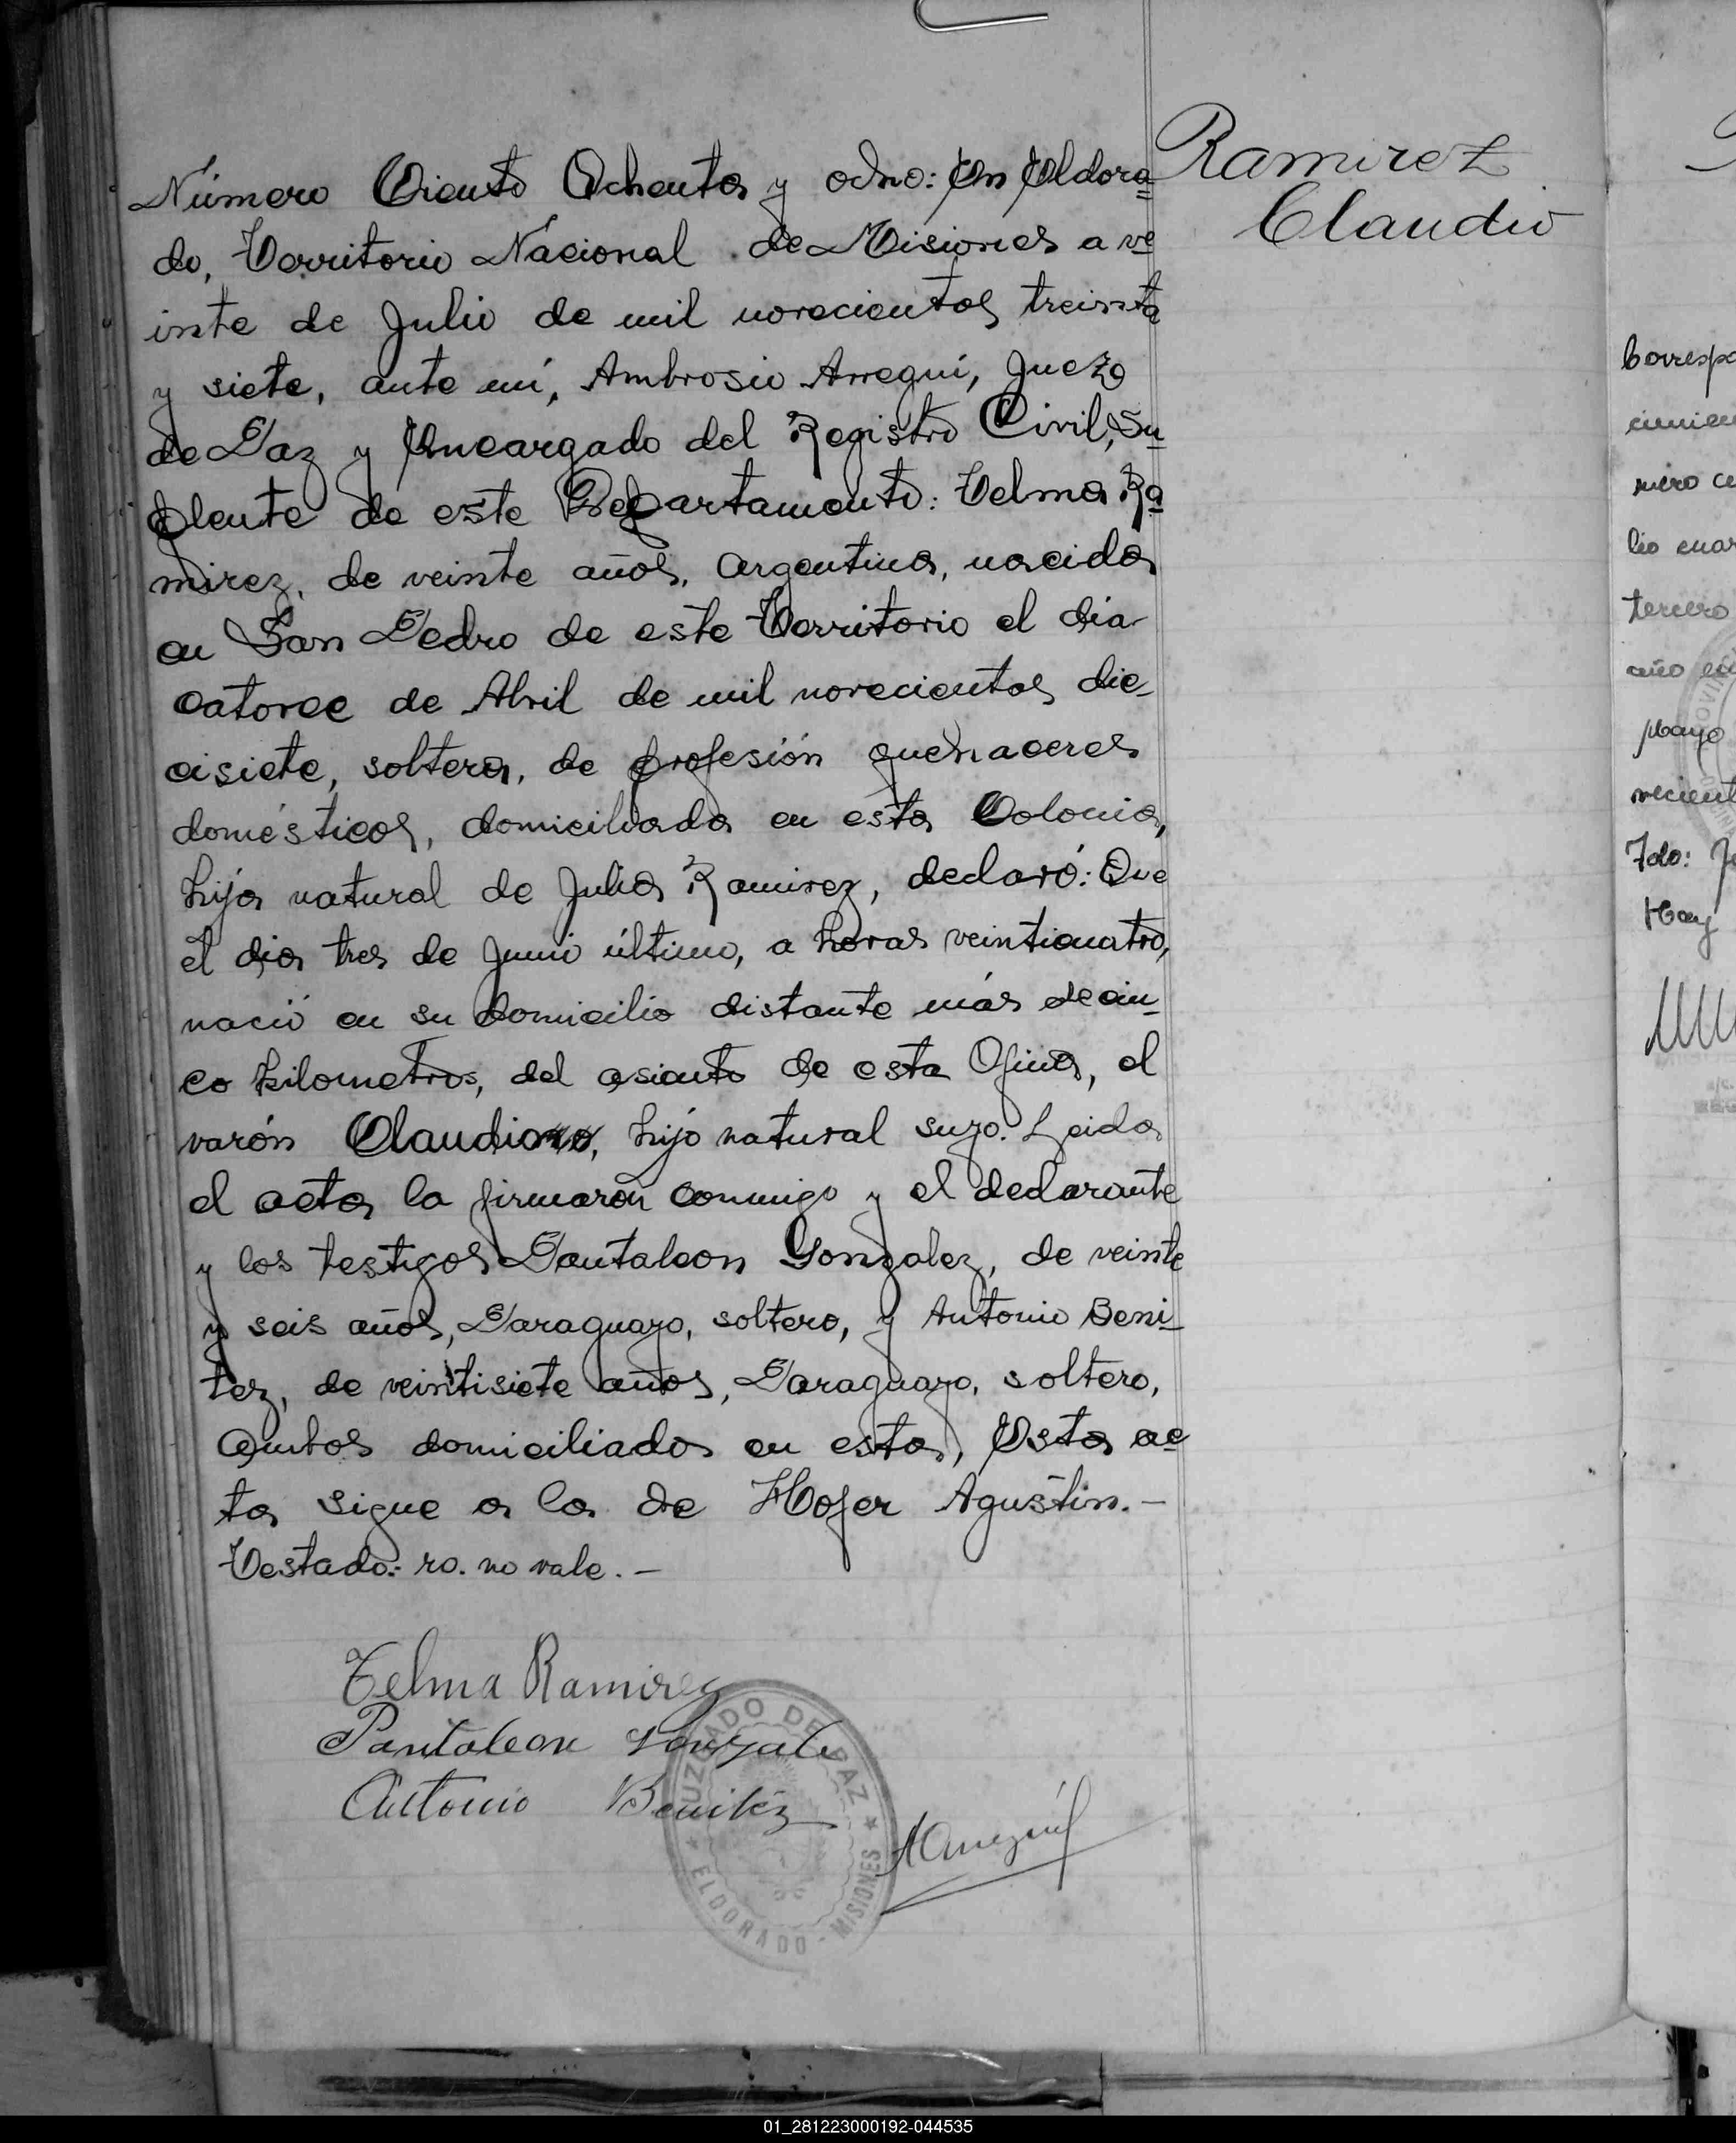 Ramirez
Claudio
Número Ciento Ochenta y ocho: En Eldora=
do, Territorio Nacional de Misiones a ve=
inte de Julio de mil novecientos treinta
y siete, ante mí, Ambrosio Arregui, Juez
de Paz y Encargado del Registro Civil, Su=
plente de este Departamento: Telma Ra=
mirez, de veinte años, argentina, nacida
en San Pedro de este Territorio el dia
catorce de Abril de mil novecientos die-
cisiete, soltera, de profesión quehaceres
domésticos, domiciliada en esta Colonia,
hija natural de Julia Ramirez, declaró: Que
el dia tres de Junio último, a horas veinticuatro,
nació en su domicilio distante más de cin-
co kilometros, del asiento de esta Ofina, el
varón Claudio, hijo natural suyo. Leida
el acta la firmaron conmigo y el declarante
y los testigos Pantaleon Gonzalez, de veinte
y seis años, Paraguayo, soltero, y Antonio Beni-
tez, de veintisiete años, Paraguayo, soltero,
ambos domiciliados en esta, Esta ac=
ta sigue a la de Hofer Agustin.-
Testado:- ro. no vale.-
Telma Ramirez
Pantaleon Gonzale
Antonio Benitéz
AArregui
JUZGADO DE PAZ
ELDORADO - MISIONES
Corresp
cimien
mero c
lio
tercero
año
Mayo
vecient
Fdo:
Hay
01_281223000192-044535